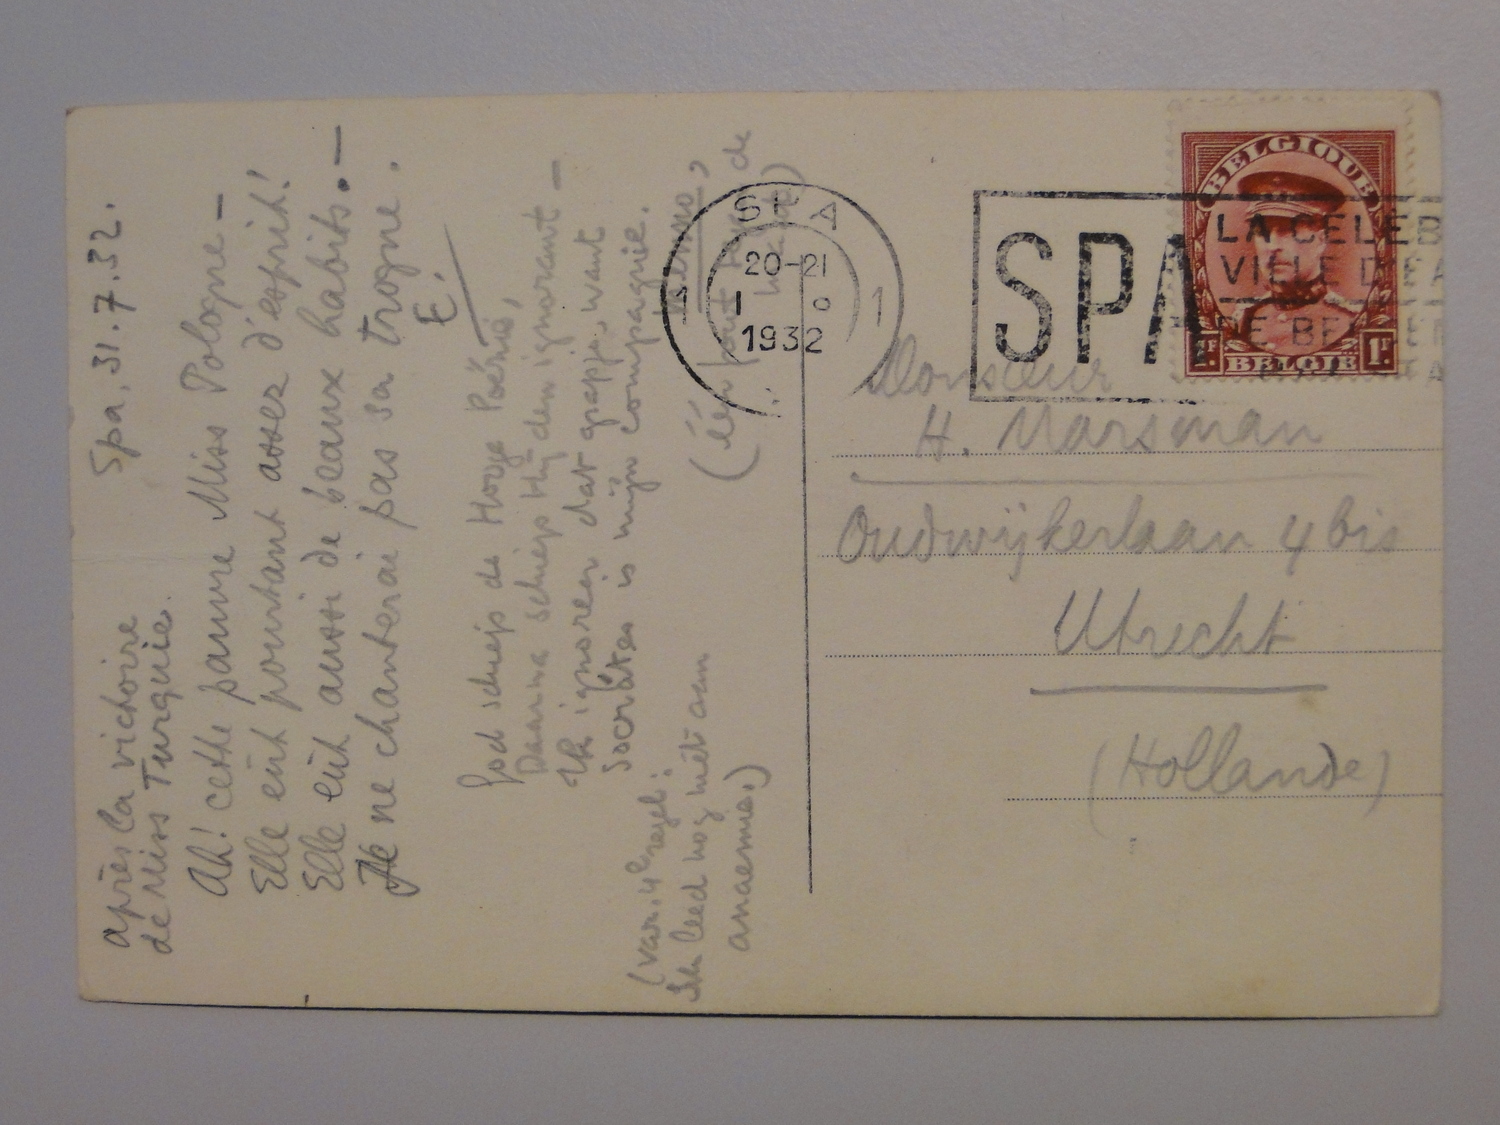 Spa, 31.7.32.
après la victoire
de Miss Turquie.
Ah! cette pauvre Miss Pologne –
Elle eût pourtant assez d'esprit!
Elle eût aussi de beaux habits. –
Je ne chanterai pas sa trogne.
E.
God schiep de Hooge Poëzië,
Daarna schiep Hij den ignorant –
Ik ignoreer dat grapje, want
Socrates is mijn compagnie.
(var. 4e regel:
Ik leed nog niet aan
anaemie.)
(één pour de
SPA
20-21
1
1932
1
SPA
LA CÉLÈB
VILLE D'EA
DE BE
BELGIQUE
BELGIË
1F
1F
Monsieur
H. Marsman
Oudwijkerlaan 4 bis
Utrecht
(Hollande)